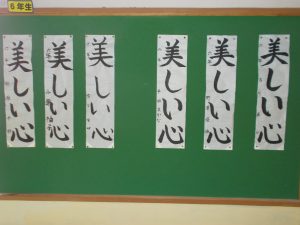 6年生
美しい心
美しい心
美しい心
美しい心
美しい心
美しい心